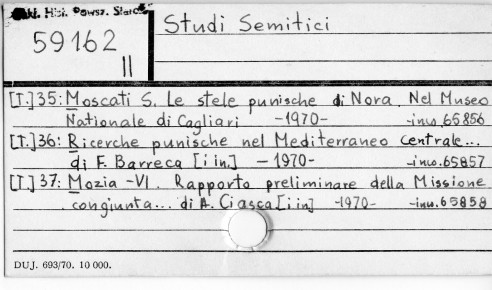 Zakł. Hist. Powsz. Staroż.
59162
II
Studi Semitici
[T.]35: Moscati S. Le stele punische di Nora. Nel Museo
Nazionale di Cagliari -1970- -inw.65856
[T.]36: Ricerche punische nel Mediterraneo centrale...
di F. Barreca [i in] -1970- -inw.65857
[T.]37: Mozia -VI. Rapporto preliminare della Missione
congiunta... di A. Ciasca [i in] -1970- -inw.65858
DUJ. 693/70. 10 000.